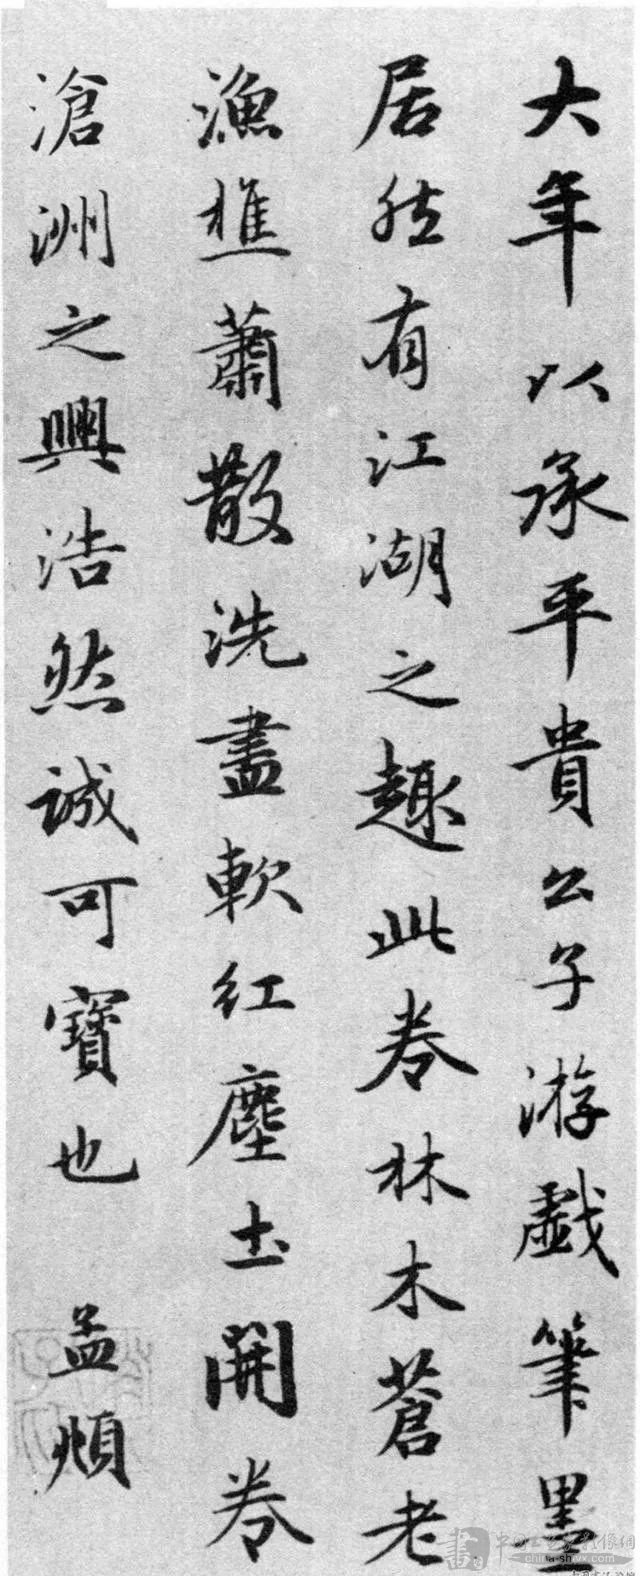 大年以承平貴公子游戲筆墨
居然有江湖之趣此卷林木蒼老
漁樵蕭散洗盡軟紅塵土開卷
滄洲之興浩然誠可寶也 孟頫
china-shwx.com